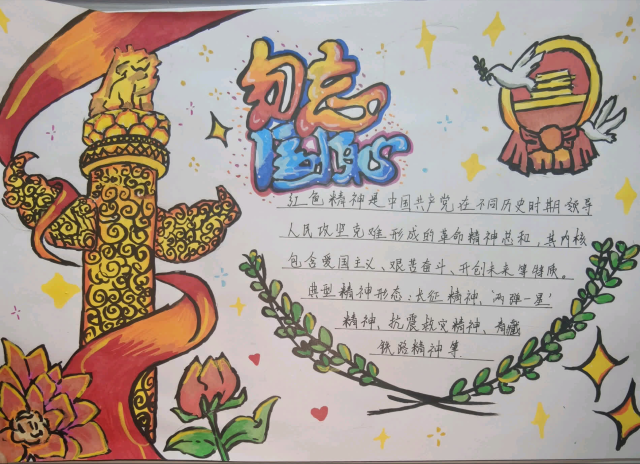 勿忘
国耻
红色精神是中国共产党在不同历史时期领导
人民攻坚克难形成的革命精神总和，其内核
包含爱国主义、艰苦奋斗、开创未来等特质。
典型精神形态：长征精神，“两弹一星”
精神、抗震救灾精神、青藏
铁路精神等